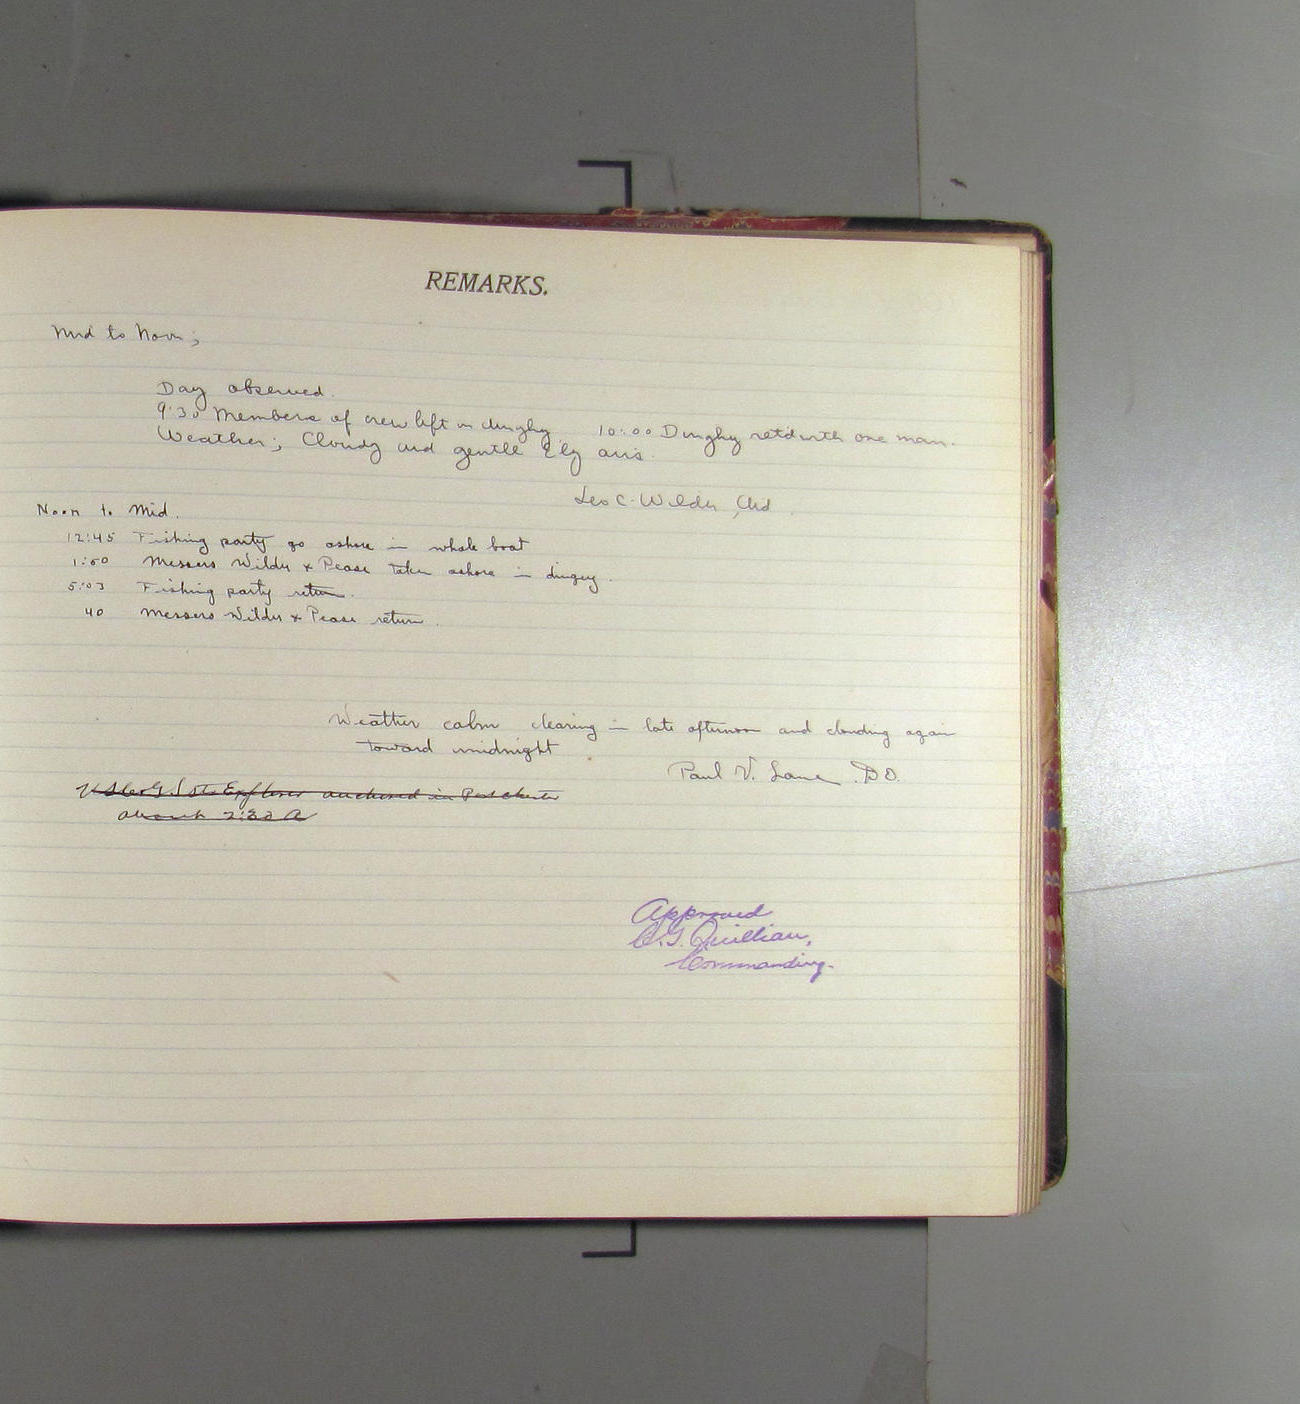 REMARKS.
Mid to Noon;
Day observed.
9:30 Members of crew left in dinghy 10:00 Dinghy retd with one man.
Weather; Cloudy and gentle E'ly airs.
Leo C. Wilder
Noon to Mid.
12:45 Fishing party go ashore in whale boat
1:00 Messers Wilder & Pease taken ashore in dingey.
5:03 Fishing party return.
40 Messers Wilder & Pease return.
Weather calm clearing in late afternoon and clouding again
toward midnight
Paul V. Lane D.O.
Str Explorer anchored in Port Chester
about 2:30 A
Approved
C.G. Quillian,
Commanding.